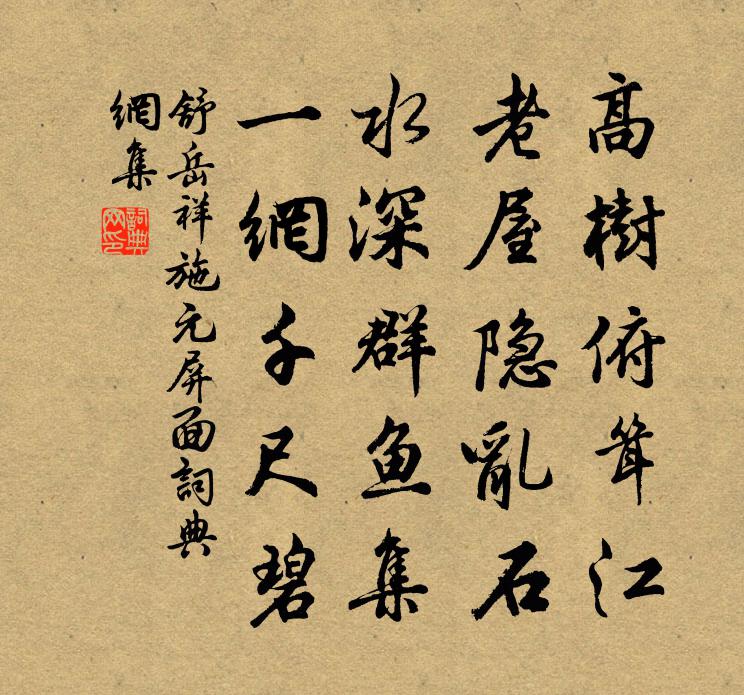 高樹俯茸江
老屋隐亂石
水深群鱼集
一網千尺碧
舒岳祥施元屏面詞典
網集
詞典
网印